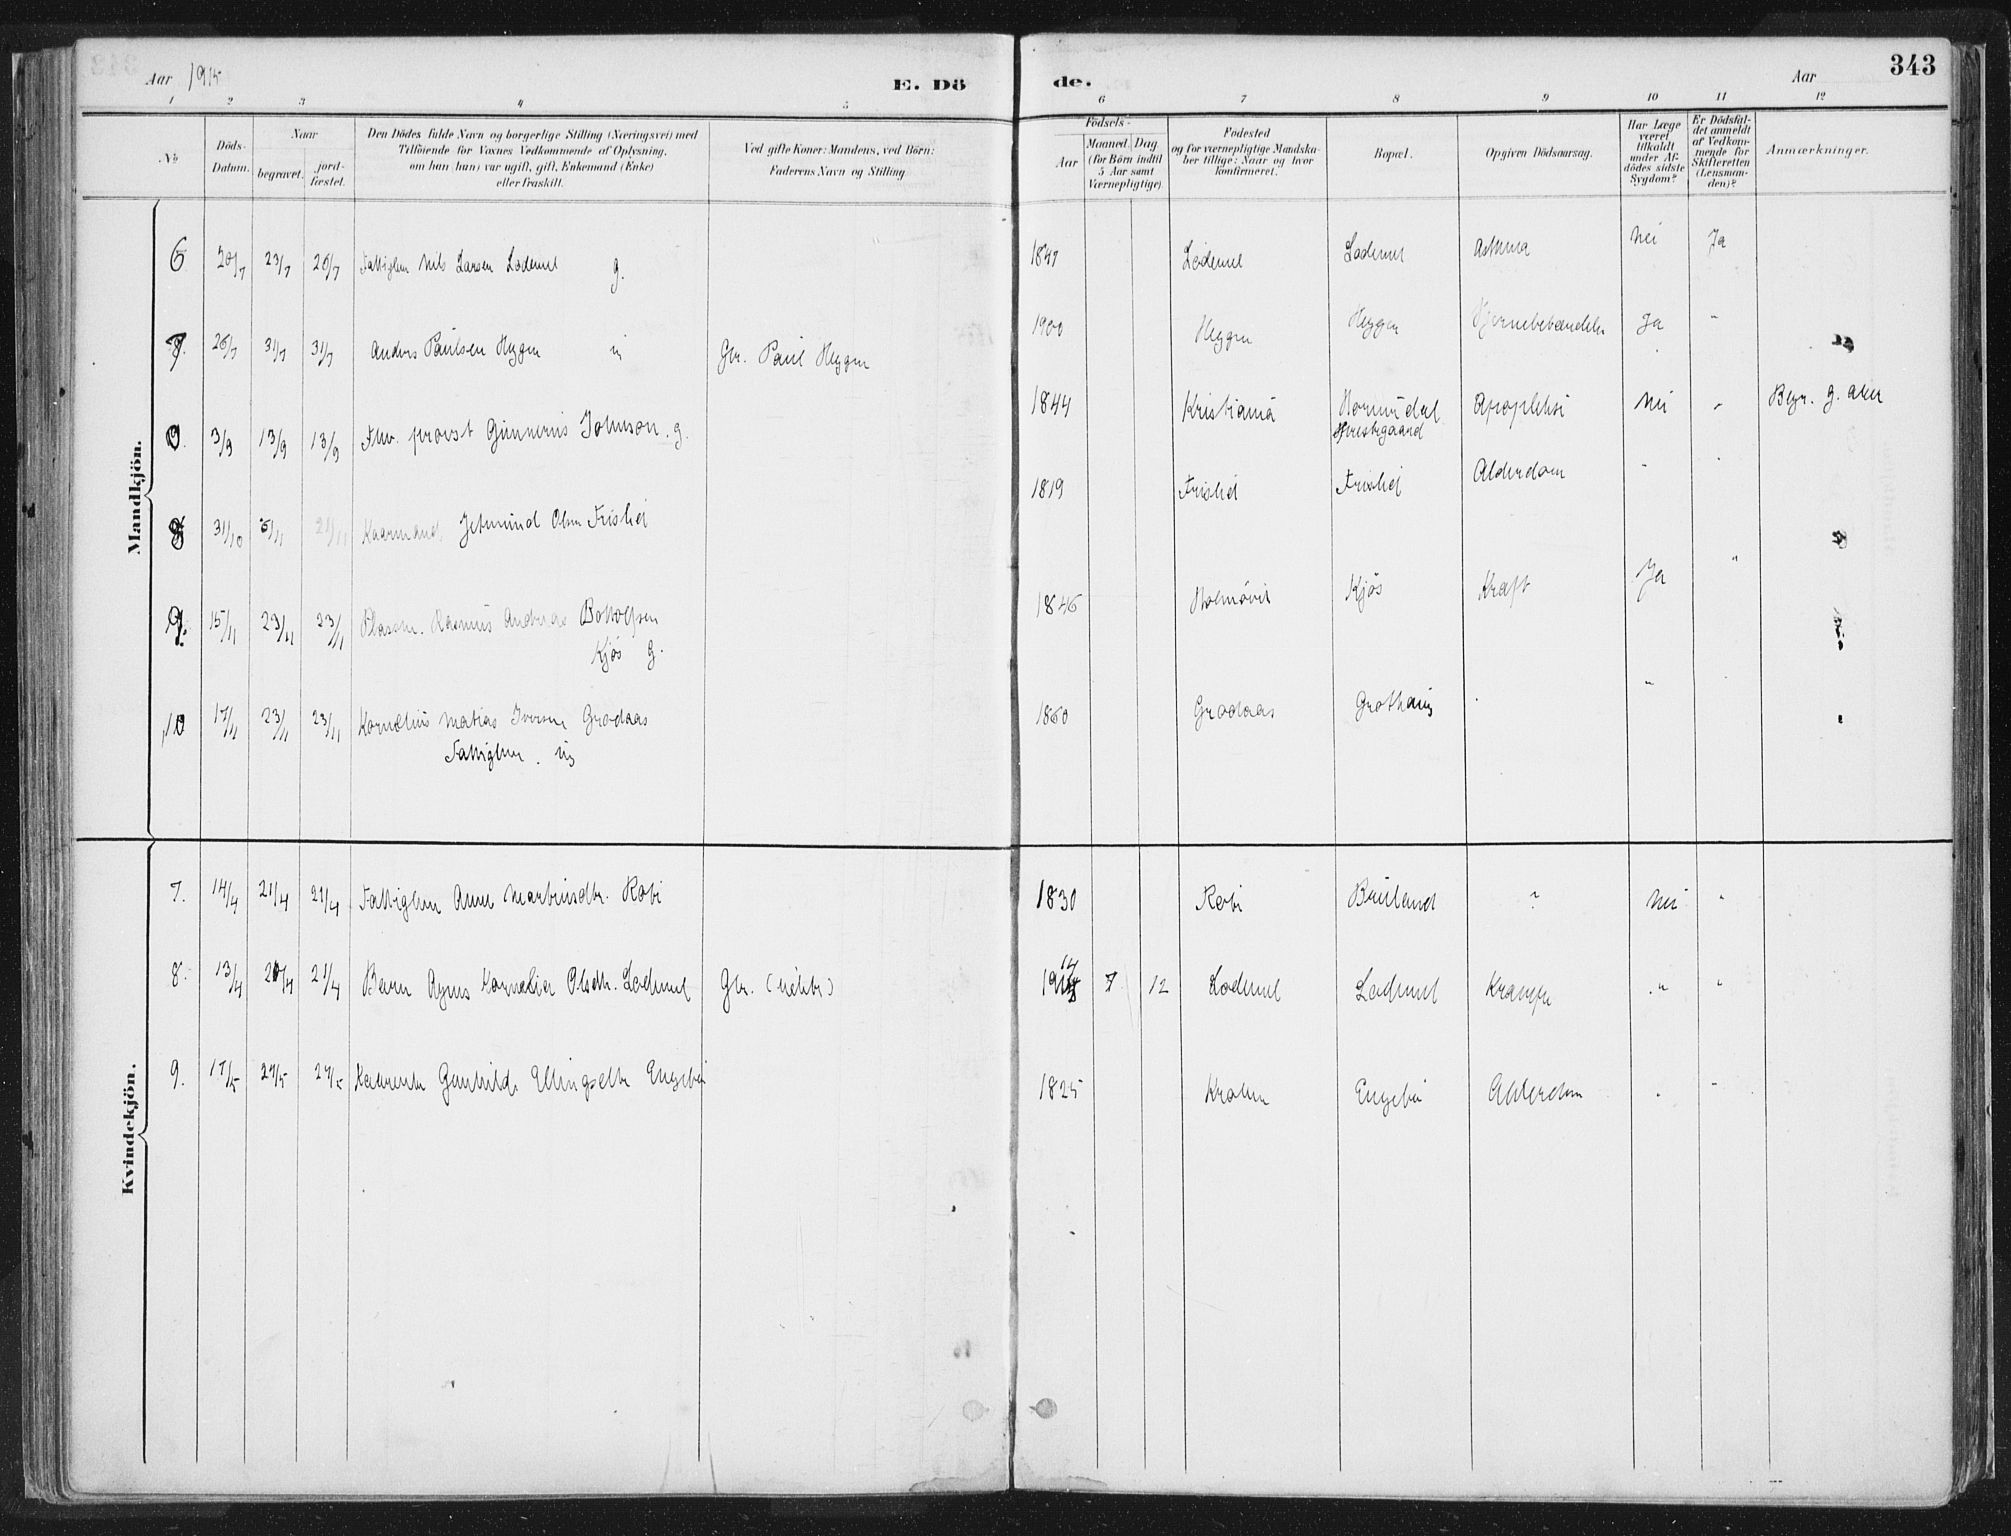 343
Aar 1915
E. Dö
de.
Aar
1 2 3 4 5 6 7 8 9 10 11 12
No
Döds-Datum.
Naar
begravet.
jord-fæstet.
Den Dödes fulde Navn og borgerlige Stilling (Næringsvei) med
Tilföiende for Voxnes Vedkommende af Oplysning,
om han (hun) var ugift, gift, Enkemand (Enke)
eller fraskilt.
Ved gifte Koner: Mandens, ved Börn:
Faderens Navn og Stilling
Födsels-
Aar
Maaned. Dag.
(for Börn indtil
5 Aar samt
Værnepligtige).
Födested
og for værnepligtige Mandska-
ber tillige: Naar og hvor
konfirmeret.
Bopæl.
Opgiven Dödsaarsag.
Har Læge
været
tilkaldt
under Af-
dödes sidste
Sygdom?
Er Dödsfal-
det anmeldt
af Vedkom-
mende for
Skifteretten
(Lensman-
den)?
Anmærkninger.
Mandkjön.
6 20/7 23/7 26/7 Fattiglem Nils Larsen Lødemel g. Lødemel Lødemel Asthma Nei Ja
7. 26/7 31/7 31/7 Anders Paulsen Heggen u Gbr. Paul Heggen 1900 Heggen Heggen Hjernebetændelse Ja "
3/9 13/9 13/9 Fhv. provst Gunnerius Johnson. g. 1844 Kristiania Hornindal Apopleksi Nei " Begr. g. aker
Prestegaard
8 31/10 6/11 21/11 Kaarmand Jetmund Olsen Frislid 1819 Frislid Frislid Alderdom " "
9. 15/11 23/11 23/11 Plassm. Rasmus Andreas Bottolfsen 1846 Holmøvik Kjøs Kraft Ja "
Kjøs g.
10 17/11 23/11 23/11 Kornelius Matias Iversen Grodaas 1860 Grodaas Grothaug "
Fattiglem. ug
Kvindekjön.
7. 14/4 21/4 21/4 Fattiglem Anne Martinusdtr. Røbi 1830 Røbi ? Nei "
8. 13/4 20/4 21/4 Barn Agnes Kornelia Olsdtr. Lødemel Gbr. 1914 7 12 Lødemel Lødemel Krampe " "
9. 17/5 24/5 24/5 Gunhild Ellingsdtr Engebø 1825 Engebø Alderdom " "